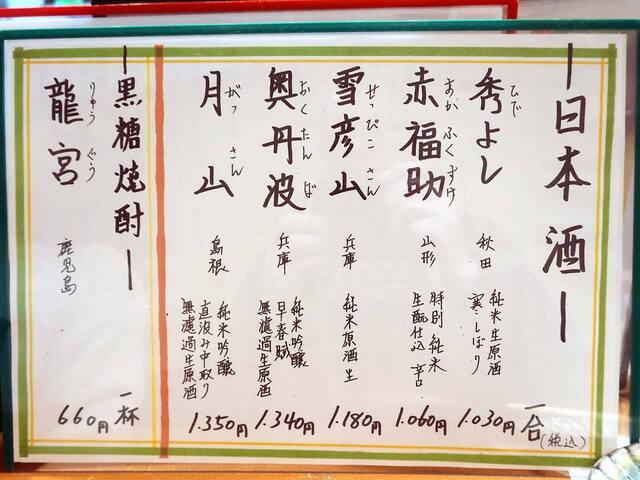 日本酒
秀よし
ひで
秋田
純米生原酒
寒しぼり
1.030円
一合
(税込)
赤福助
あかふくすけ
山形
特別純米
生酛仕込 辛口
1.060円
雪彦山
せっぴこさん
兵庫
純米原酒生
1.180円
奥丹波
おくたんば
兵庫
純米吟醸
早春賦
無濾過生原酒
1.340円
月山
がっさん
島根
純米吟醸
直汲み中取り
無濾過生原酒
1.350円
黒糖焼酎
龍宮
りゅうぐう
鹿児島
一杯
660円